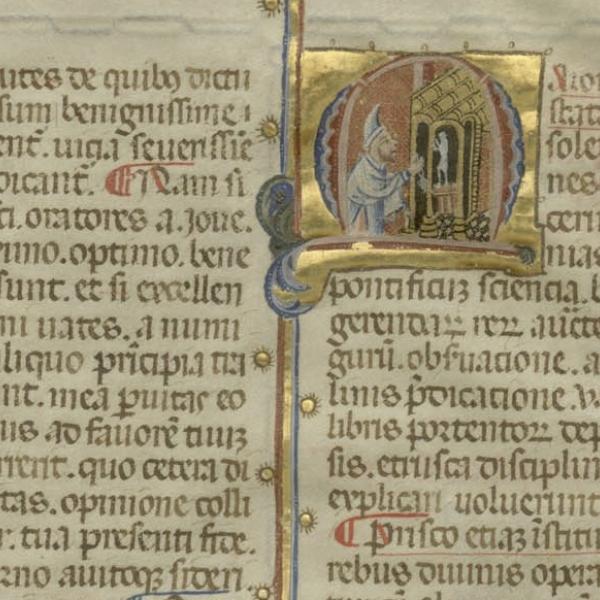 uites de quibꝯ dictū
sum benignissime i
ent̄. uicia seuerissīe
dicant̄. Nam si
ci. oratores a. Ioue.
imo. optimo. bene
sunt. et si excellen
ni uates. a numi
liquo pn̄cipia tra
nt. mea ꝑuitas eo
us ad fauorē tuuꝫ
rrent. quo cetera di
tas. opinione colli
r. tua presenti fide.
rno auitoqꝫ sideri.
stat
sole
nes
cerī
nias
pontificuꝫ sciencia. b
gerendaꝝ reꝝ aūcte
gurū. obẜuacione. a
linis p̄dicacione. v
libris portentoꝝ dep
sis. etrusca disciplin
explicari uoluerunt
Prisco etiaꝫ īstitu
rebus diuinis opera